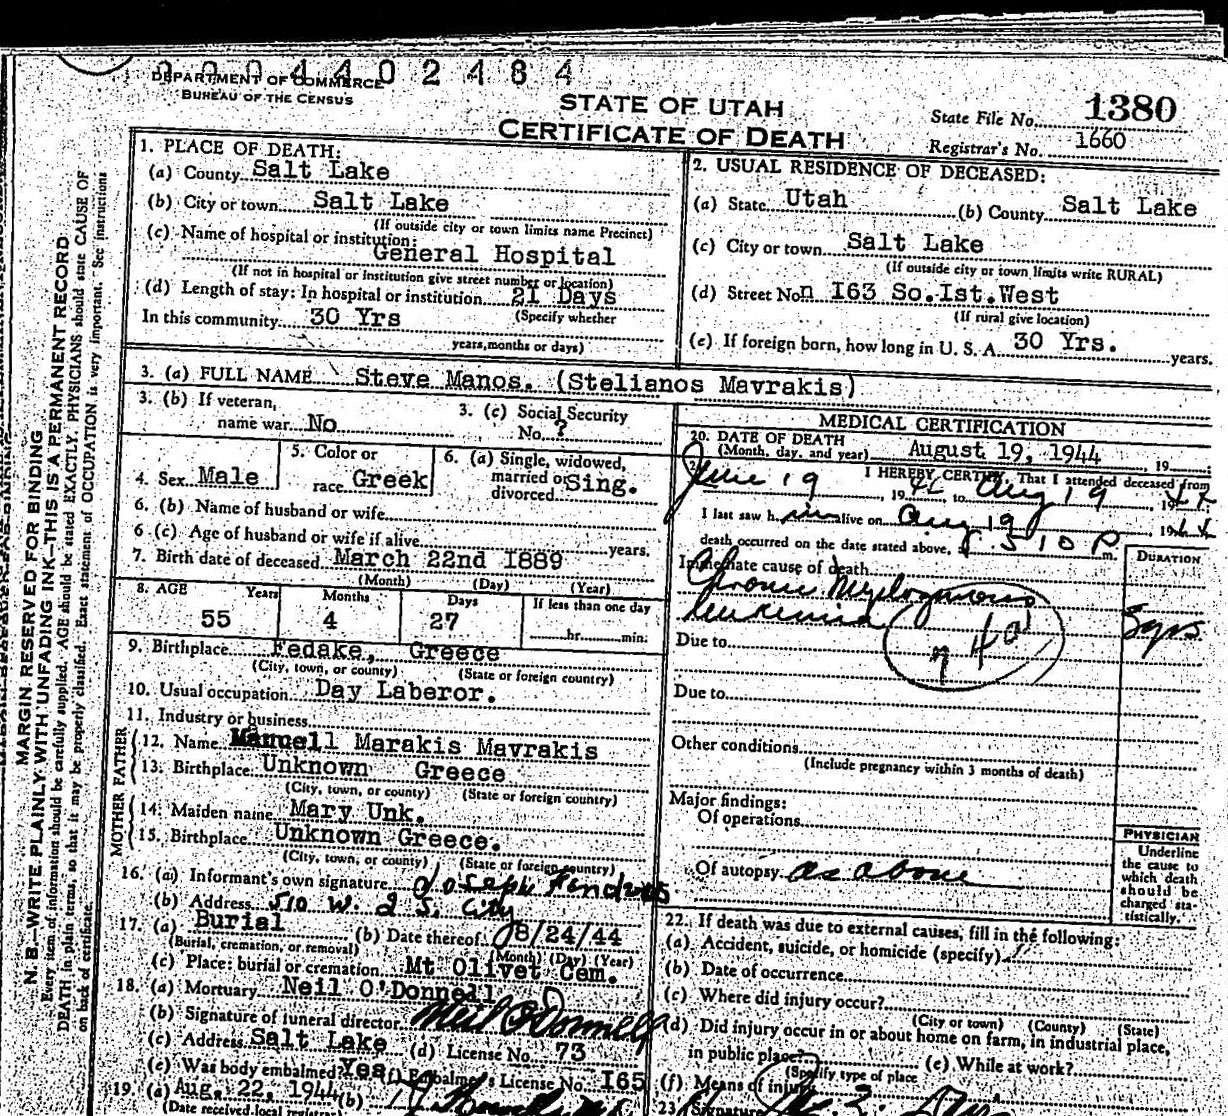 0 0 0 4 4 0 2 4 8 4
DEPARTMENT OF COMMERCE
BUREAU OF THE CENSUS
STATE OF UTAH
CERTIFICATE OF DEATH
State File No. 1380
Registrar's No. 1660
MARGIN RESERVED FOR BINDING
N. B.—WRITE PLAINLY, WITH UNFADING INK—THIS IS A PERMANENT RECORD
Every item of information should be carefully supplied. AGE should be stated EXACTLY. PHYSICIANS should state CAUSE OF
DEATH in plain terms, so that it may be properly classified. Exact statement of OCCUPATION is very important. See instructions
on back of certificate.
1. PLACE OF DEATH:
(a) County Salt Lake
(b) City or town Salt Lake
(If outside city or town limits name Precinct)
(c) Name of hospital or institution:
General Hospital
(If not in hospital or institution give street number or location)
(d) Length of stay: In hospital or institution 21 Days
In this community 30 Yrs (Specify whether
years, months or days)
2. USUAL RESIDENCE OF DECEASED:
(a) State Utah (b) County Salt Lake
(c) City or town Salt Lake
(If outside city or town limits write RURAL)
(d) Street No n I63 So.Ist.West
(If rural give location)
(e) If foreign born, how long in U. S. A. 30 Yrs. years.
3. (a) FULL NAME Steve Manos. (Stelianos Mavrakis)
3. (b) If veteran,
name war No
3. (c) Social Security
No. ?
4. Sex Male
5. Color or
race Greek
6. (a) Single, widowed,
married or
divorced Sing.
6. (b) Name of husband or wife
6 (c) Age of husband or wife if alive years.
7. Birth date of deceased March 22nd I889
(Month) (Day) (Year)
8. AGE Years Months Days If less than one day
55 4 27 hr. min.
9. Birthplace Fedake, Greece
(City, town, or county) (State or foreign country)
10. Usual occupation Day Laberor.
11. Industry or business
FATHER
12. Name Manuell Marakis Mavrakis
13. Birthplace Unknown Greece
(City, town, or county) (State or foreign country)
MOTHER
14. Maiden name Mary Unk.
15. Birthplace Unknown Greece.
(City, town, or county) (State or foreign country)
16. (a) Informant's own signature Joseph
(b) Address 510 W. 2 S. City
17. (a) Burial (b) Date thereof 8/24/44
(Burial, cremation, or removal) (Month) (Day) (Year)
(c) Place: burial or cremation Mt Olivet Cem.
18. (a) Mortuary Neil O'Donnell
(b) Signature of funeral director Neil O'Donnell
(c) Address Salt Lake (d) License No. 73
(e) Was body embalmed? Yes (f) Embalmer's License No. I65
19. (a) Aug. 22, 1944 (b)
(Date received local registrar)
MEDICAL CERTIFICATION
20. DATE OF DEATH
(Month, day, and year) August 19, 1944 , 19
I HEREBY CERTIFY, That I attended deceased from
June 19, 1944 to Aug 19, 1944
I last saw h im alive on Aug 19, 1944
death occurred on the date stated above, 510 P m.
Immediate cause of death
Chronic Myelogenous
leukemia
DURATION
3 yrs
Due to
Due to
Other conditions
(Include pregnancy within 3 months of death)
Major findings:
Of operations
Of autopsy as above
PHYSICIAN
Underline
the cause to
which death
should be
charged sta-
tistically.
22. If death was due to external causes, fill in the following:
(a) Accident, suicide, or homicide (specify)
(b) Date of occurrence
(c) Where did injury occur?
(City or town) (County) (State)
(d) Did injury occur in or about home on farm, in industrial place,
in public place? (e) While at work?
(Specify type of place
(f) Means of injury
23. Signature